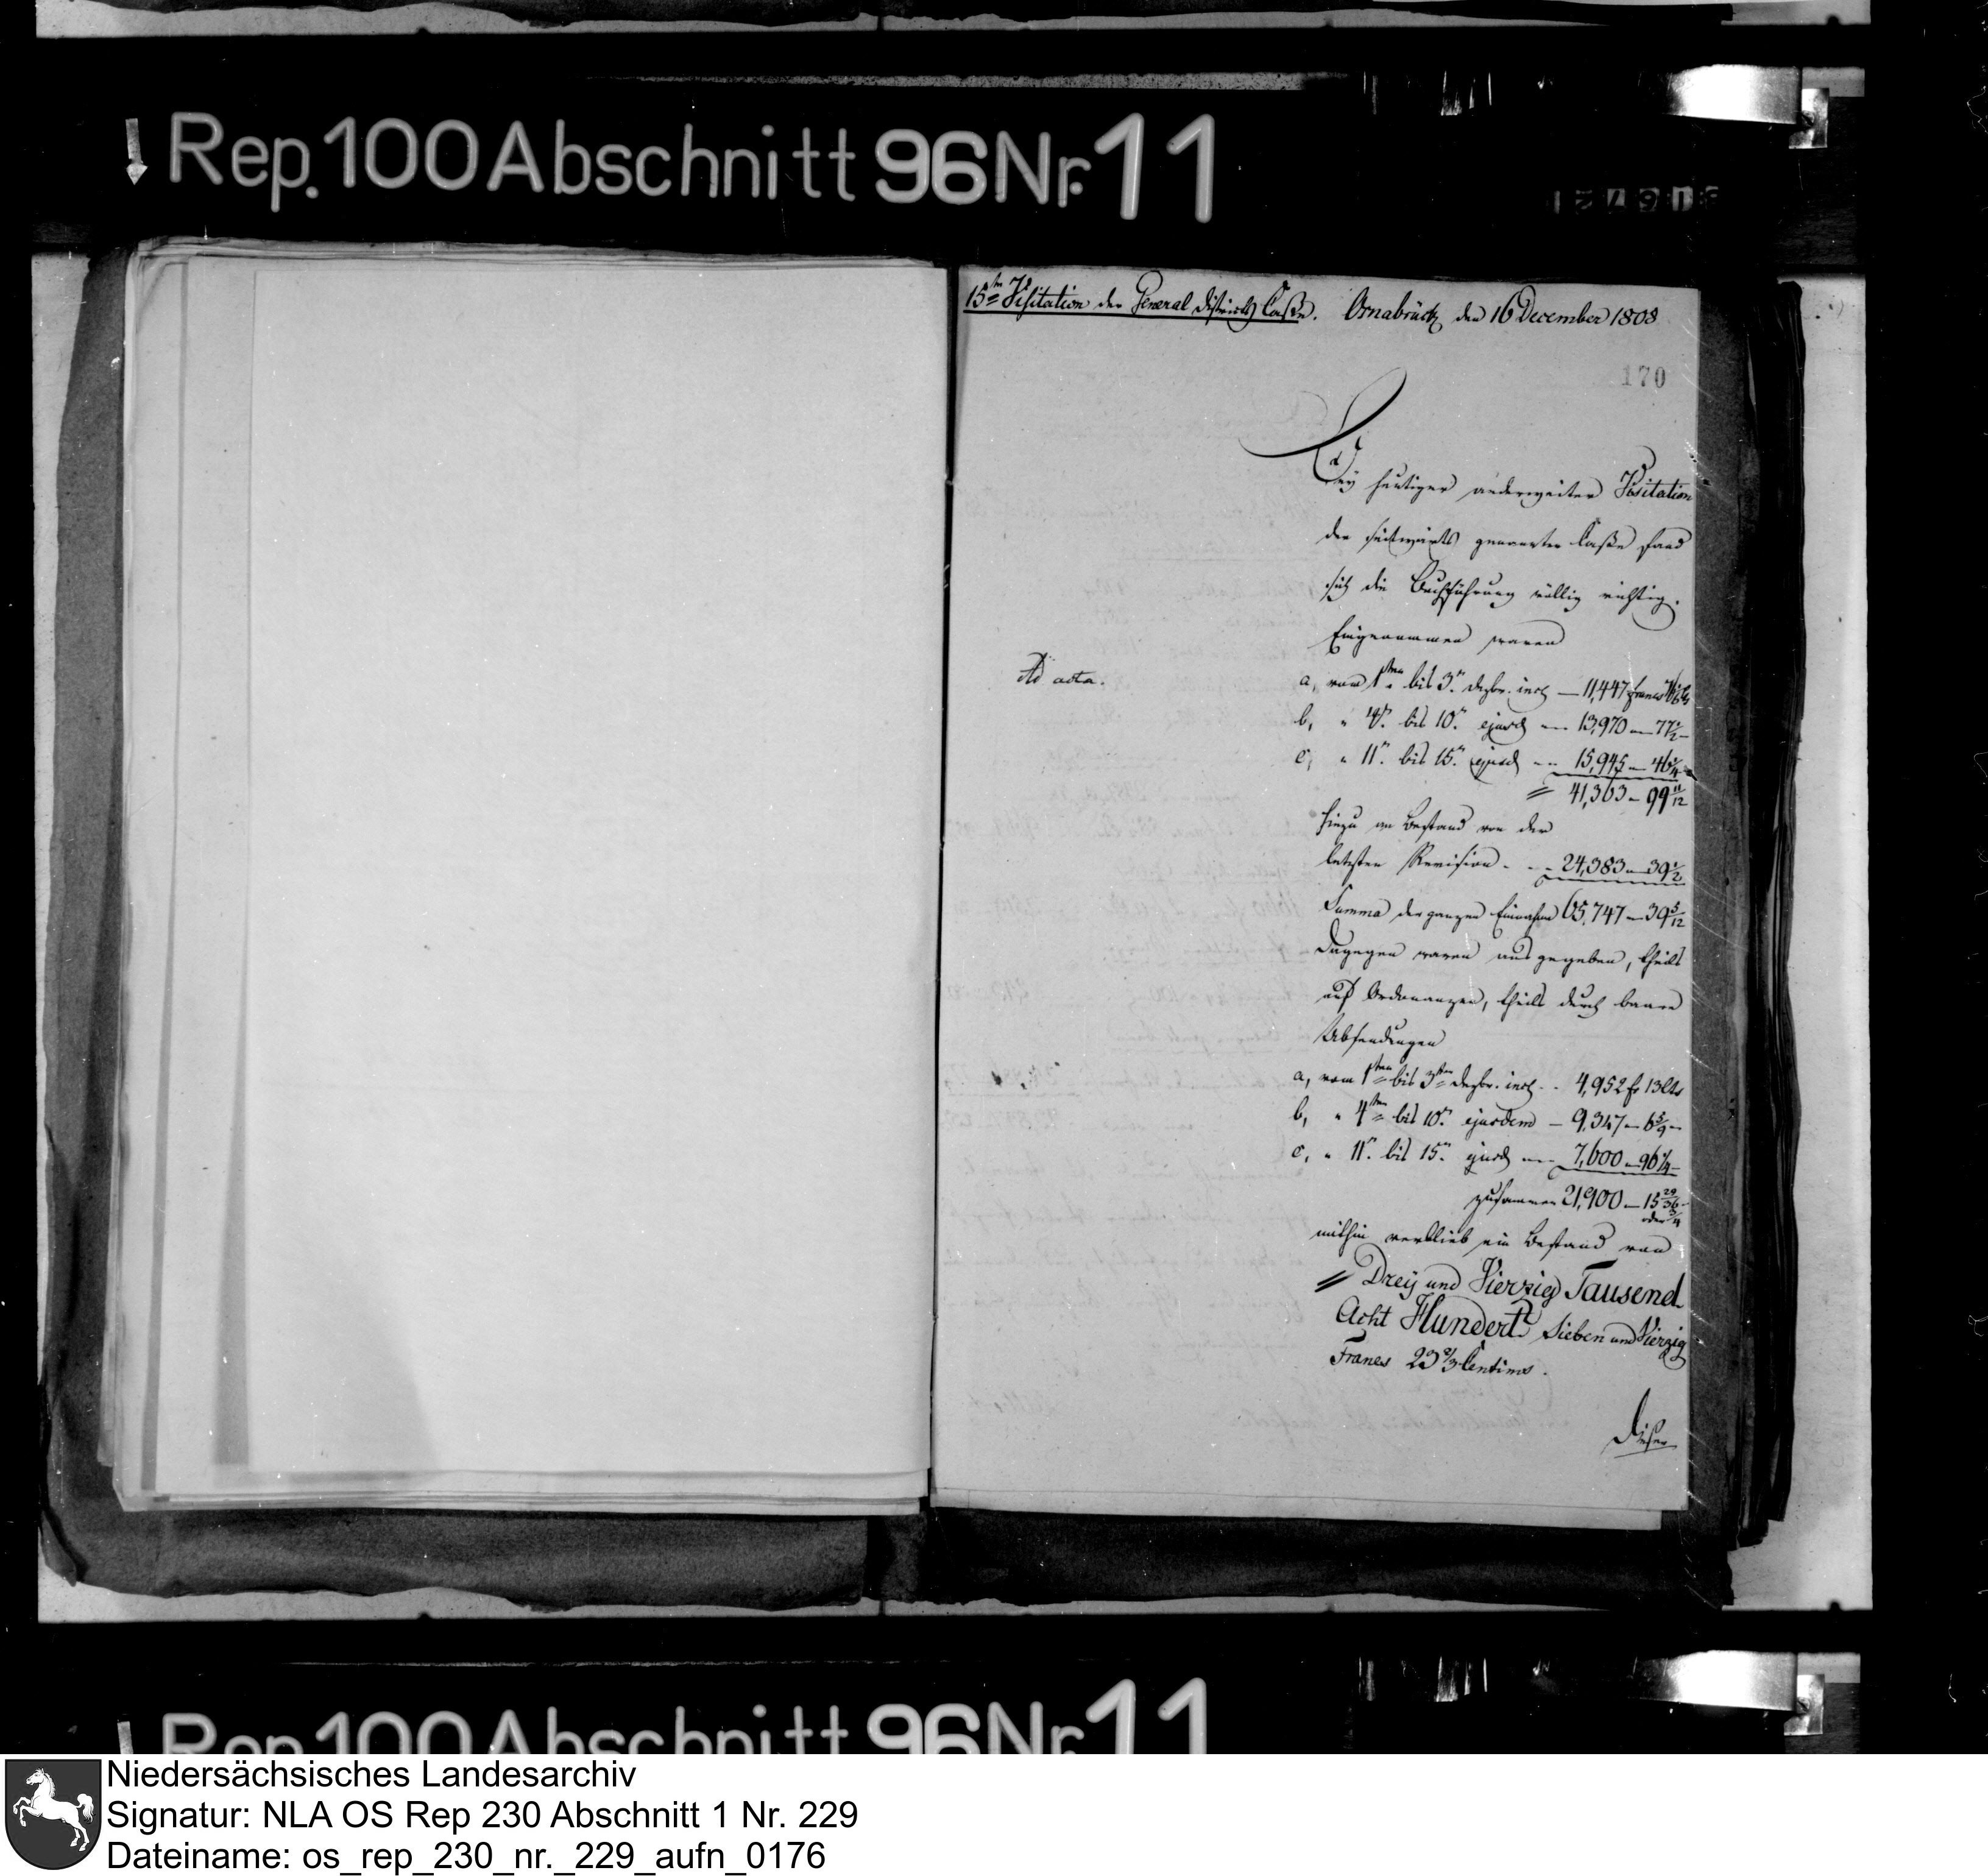 Rep. 100 Abschnitt 96 Nr. 11
15te Visitation der General Districts Caße. Osnabrück den 16 December 1808
170
Bey heutiger anderweiter Visitation
der seitwärts genannten Caße fand
sich die Buchführung völlig richtig.
Eingenommen waren
Ad acta.
a, vom 1ten bis 3n Dezbr. incl — 11,447 francs
b, " 4n bis 10n ejusd — 13,970 — 77 1/2 —
c, " 11n bis 15n ejusd — 15,945 — 46 1/4
= 41,363 — 99 11/12
hiezu an Bestand von der
letzten Revision - - - 24,383 — 39 1/2
Summa der ganzen Einnahme 65,747 — 39 5/12
Dagegen waren ausgegeben, theils
auf Ordonanzen, theils durch baare
Absendungen
a, vom 1ten bis 3ten Dezbr. incl. - - 4,952 fr 13 Cts
b, " 4ten bis 10n ejusdem — 9,347 — 6 5/9 —
c, " 11n bis 15n ejusd — 7,600 — 96 1/4 —
zusammen 21,900 — 15 29/36 —
oder 3/4
mithin verblieb ein Bestand von
= Drey und Vierzig Tausend
Acht Hundert Sieben und Vierzig
Francs 23 2/3 Centimes.
Dieser
Rep. 100 Abschnitt 96 Nr. 11
Niedersächsisches Landesarchiv
Signatur: NLA OS Rep 230 Abschnitt 1 Nr. 229
Dateiname: os_rep_230_nr._229_aufn_0176